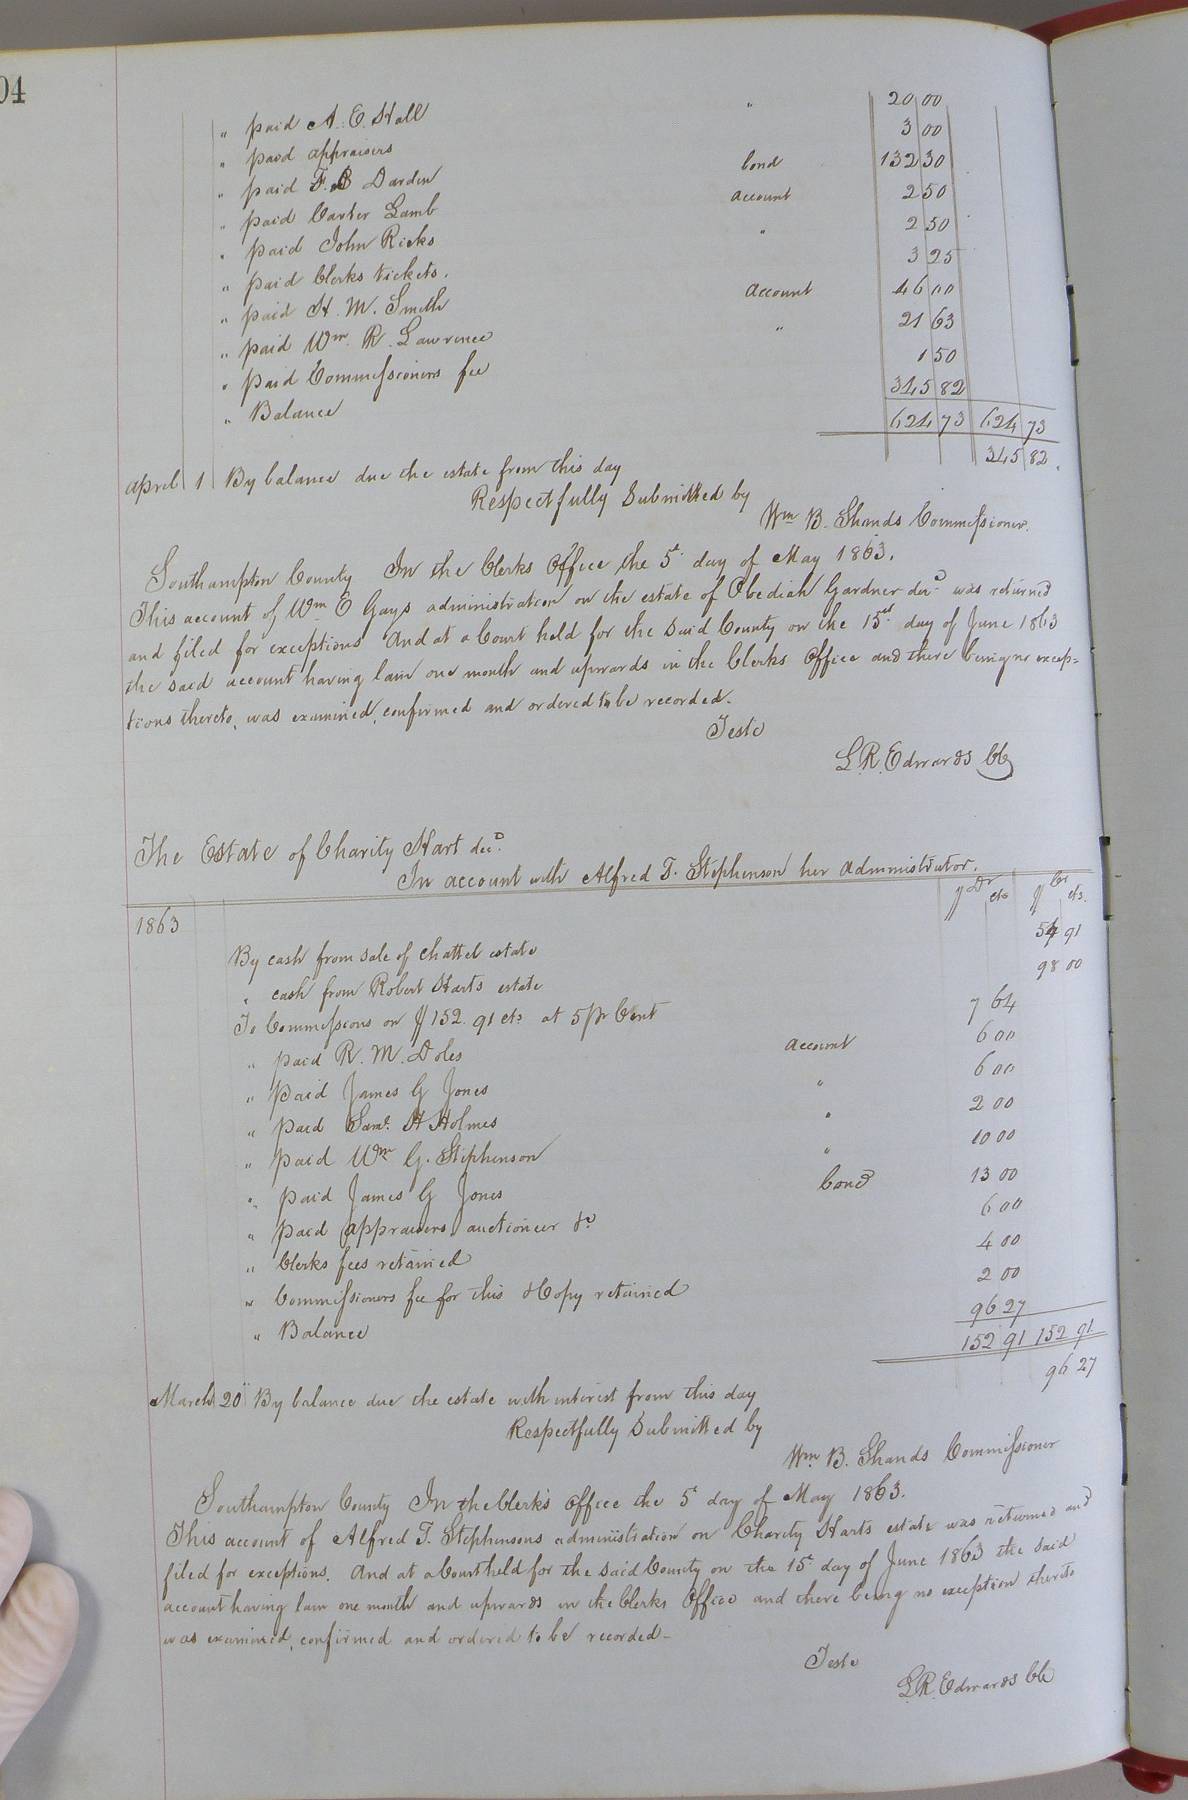 04
" paid A. E. Hall " 20 00
" paid appraisers 3 00
" paid F. B Darden bond 132 30
" paid Carter Lamb account 2 50
" paid John Ricks " 2 50
" paid Clerks tickets. 3 25
" paid H. M. Smith account 46 00
" paid Wm. R. Lawrence " 21 63
" paid Commissioners fee 1 50
" Balance 345 82
624 73 624 73
April 1 By balance due the estate from this day 345 82.
Respectfully Submitted by
Wm B. Shands Commissioner.
Southampton County In the Clerks Office the 5t day of May 1863.
This account of Wm E Gays administration on the estate of Obediah Gardner decd was returned
and filed for exceptions And at a Court held for the Said County on the 15th day of June 1863
the said account having lain one month and upwards in the Clerks Office and there being no excep=
tions thereto, was examined, confirmed and ordered to be recorded.
Teste
L. R. Edwards Clk
The Estate of Charity Hart decd.
In account with Alfred T. Stephenson her administrator.
1863 $ Dr cts $ Cr cts.
By cash from sale of chattel estate 54 91
" cash from Robert Harts estate 98 00
To Commissions on $152. 91 cts at 5 pr Cent 7 64
" paid R. M. Doles account 6 00
" paid James G Jones " 6 00
" paid Saml. H Holmes " 2 00
" paid Wm G. Stephenson " 10 00
" paid James G Jones bond 13 00
" paid appraisers auctioneer &c 6 00
" Clerks fees retained 4 00
" Commissioners fee for this & Copy retained 2 00
" Balance 96 27
152 91 152 91
March 20 By balance due the estate with interest from this day 96 27
Respectfully Submitted by
Wm. B. Shands Commissioner
Southampton County In the Clerk's Office the 5t day of May 1863.
This account of Alfred T. Stephensons administration on Charity Harts estate was returned and
filed for exceptions. And at a Court held for the said County on the 15t day of June 1863 the said
account having lain one month and upwards in the Clerks Office and there being no exception thereto
was examined, confirmed and ordered to be recorded-
Teste
L. R. Edwards Clk